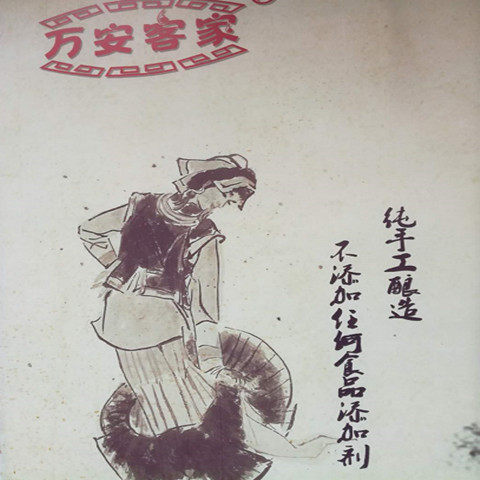 万安客家
纯手工酿造
不添加任何食品添加剂